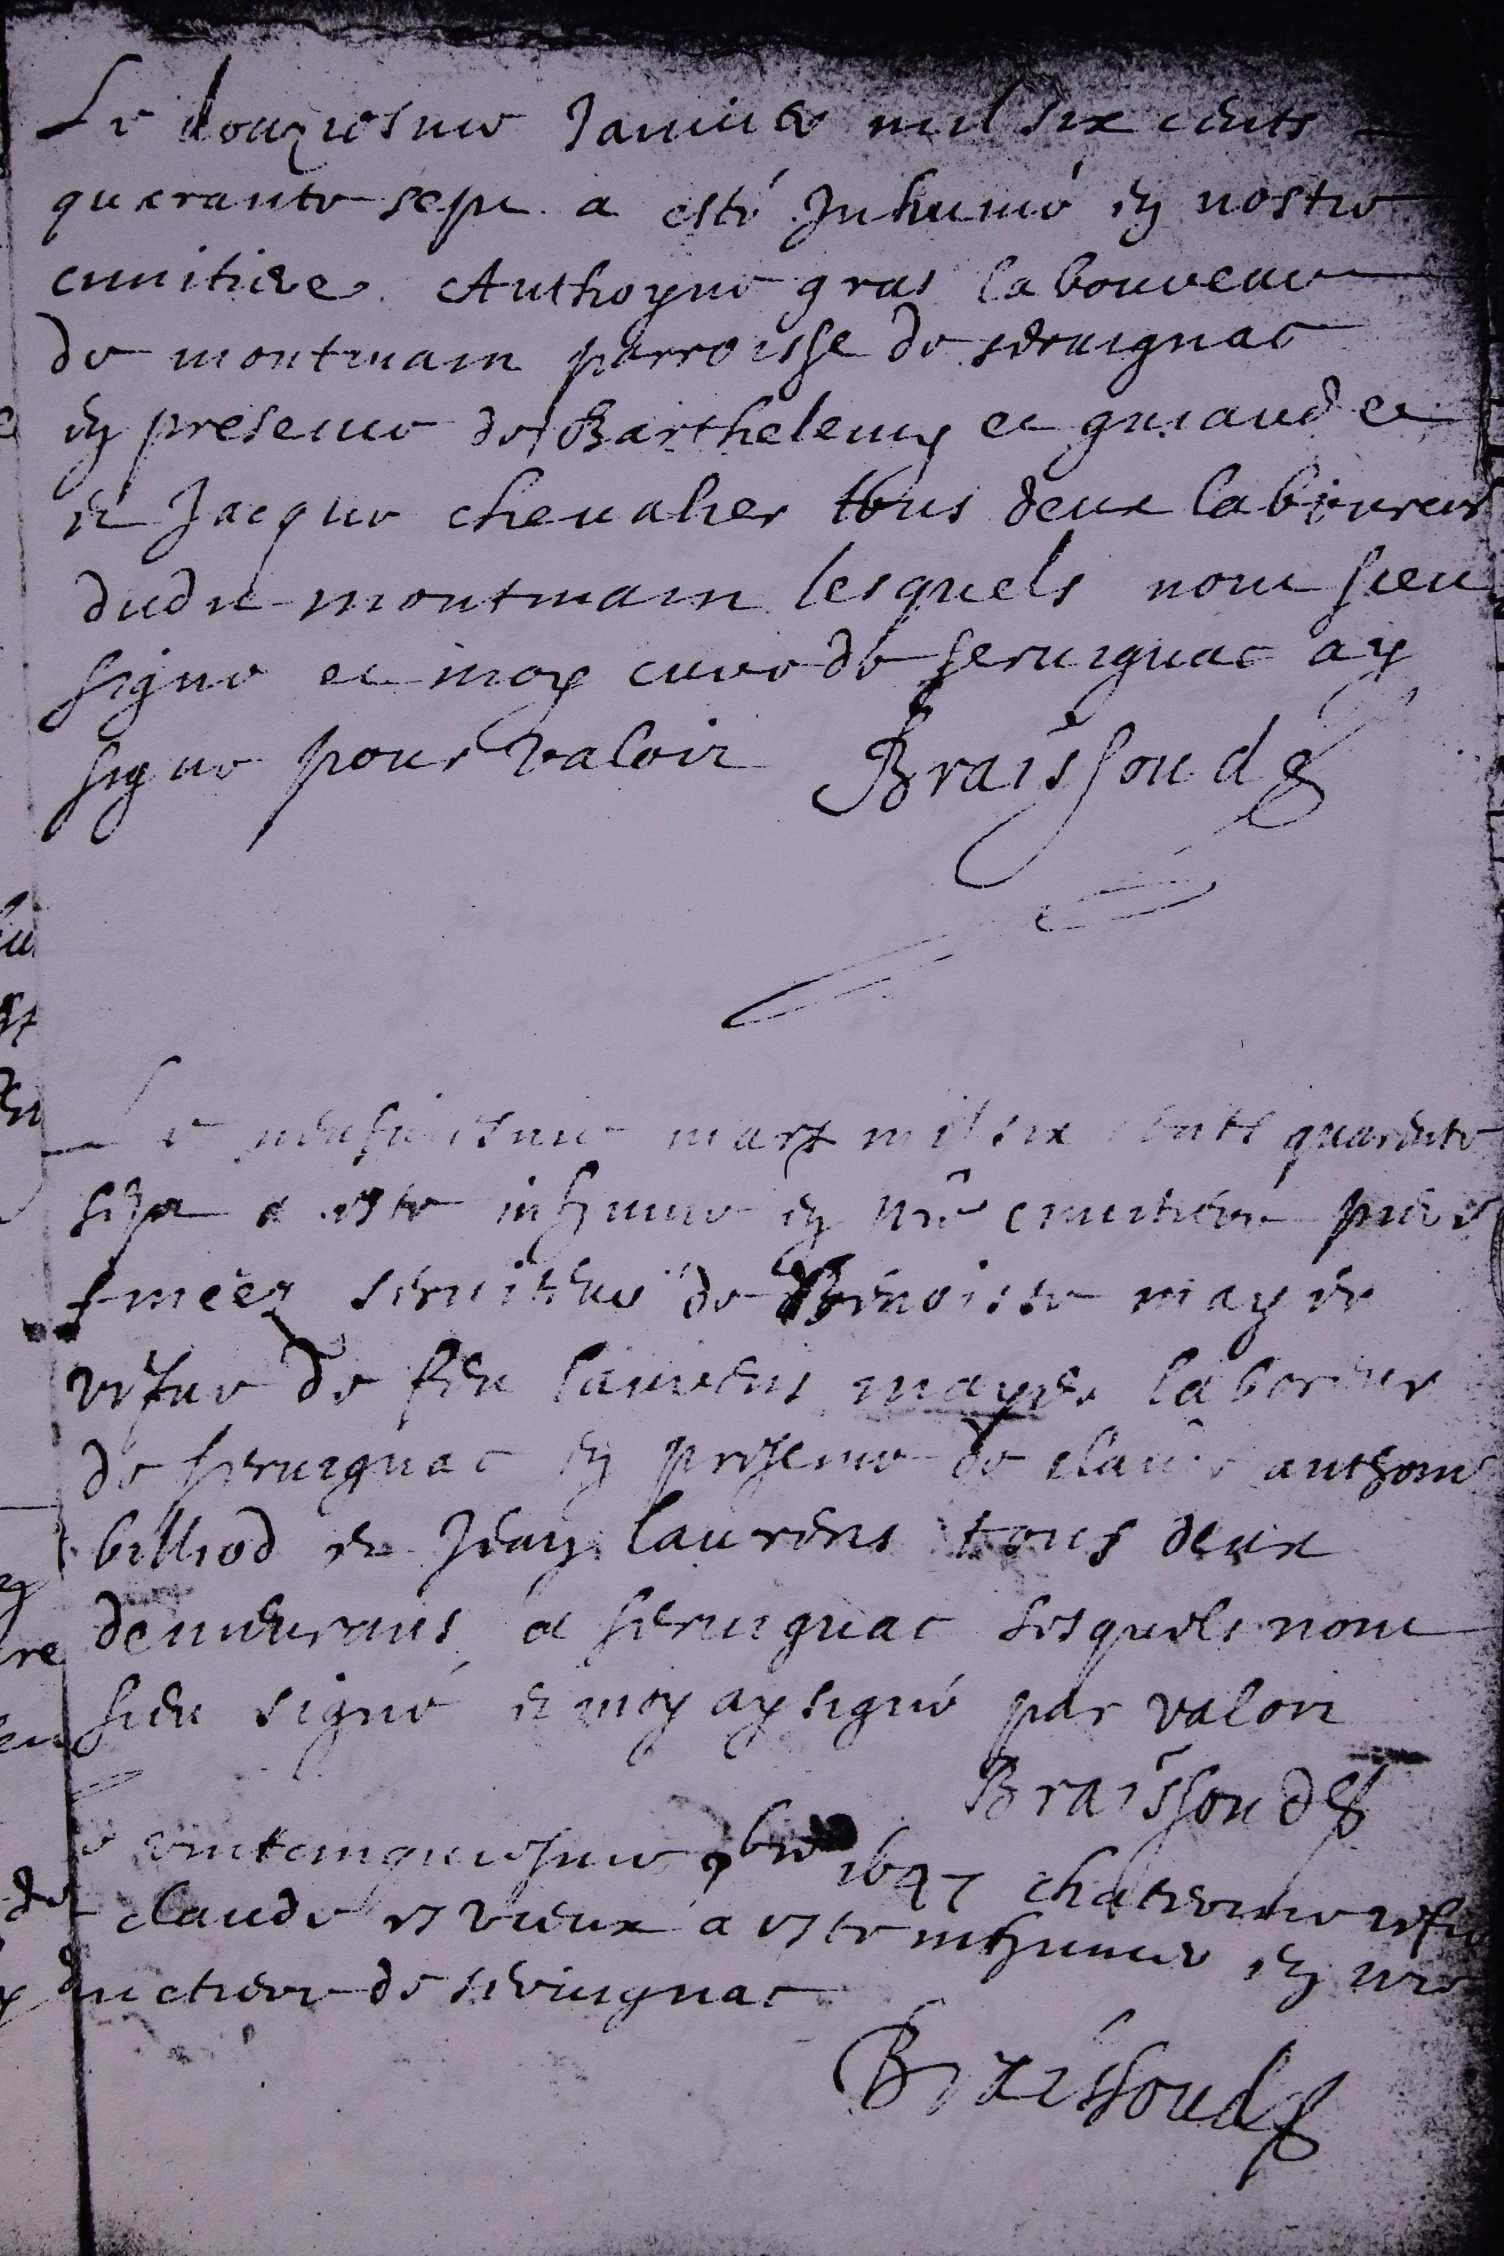 Le douziesme Januier mil six cents
quarante sept a esté Inhumé en nostre
cimitiere Anthoyne gras laboureur
de montmain parroisse de seruignac
en presence de Barthelemy
et Jacque cheualier tous deux laboureurs
dudit montmain lesquels nont sceu
signe et moy cure de seruignac ay
signe pour valoir Braissoud
Le mars mil six cents quarente
sept a este inhume en nre cimitiere
seruiteur de Benoiste mayre
vefue de feu laurens mayre laboreur
de seruignac en presence de claude anthoine
billiod et Jean laurens tous deux
demeurans a seruignac lesquels nont
sceu signé et moy ay signé par valoir
Braissoud
Le vintcinquiesme 1647 vefue
de claude vieux a este inhumee en nre
cimetiere de seruignac
Braissoud